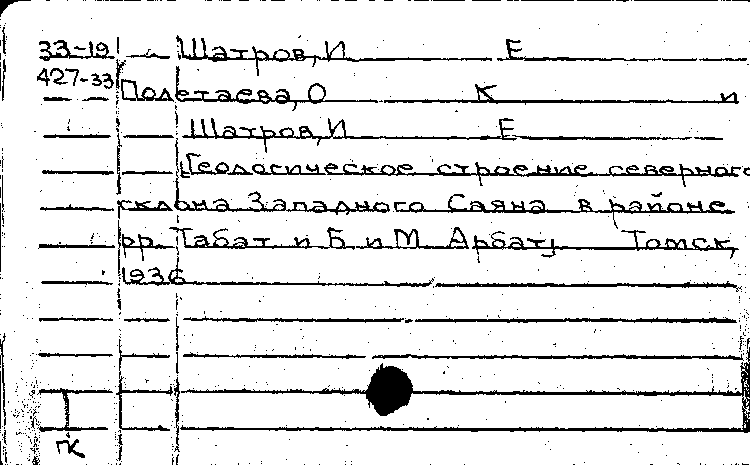 33-19 Шатров, И Е
427-33 Полетаева, О К и
Шатров, И Е
Геологическое строение северного
склона Западного Саяна в районе
рр. Табат и Б и М Арбаты Томск,
1936
ГК